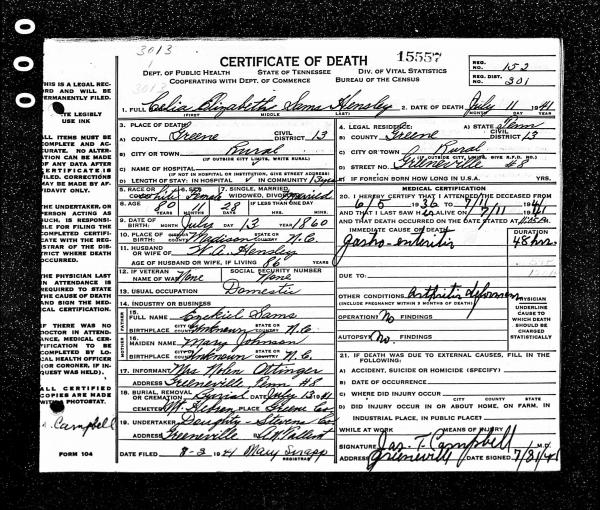 000
3013
1
3013
CERTIFICATE OF DEATH
15557
DEPT. OF PUBLIC HEALTH STATE OF TENNESSEE DIV. OF VITAL STATISTICS
COOPERATING WITH DEPT. OF COMMERCE BUREAU OF THE CENSUS
REG. NO. 152
REG. DIST. 301
THIS IS A LEGAL REC-
ORD AND WILL BE
PERMANENTLY FILED.
TE LEGIBLY
USE INK
ALL ITEMS MUST BE
COMPLETE AND AC-
CURATE. NO ALTER-
ATION CAN BE MADE
OF ANY DATA AFTER
CERTIFICATE IS
FILED. CORRECTIONS
MAY BE MADE BY AF-
FIDAVIT ONLY.
THE UNDERTAKER, OR
PERSON ACTING AS
SUCH, IS RESPONSI-
BLE FOR FILING THE
COMPLETED CERTIFI-
CATE WITH THE REG-
ISTRAR OF THE DIS-
TRICT WHERE DEATH
OCCURRED.
THE PHYSICIAN LAST
IN ATTENDANCE IS
REQUIRED TO STATE
THE CAUSE OF DEATH
AND SIGN THE MED-
ICAL CERTIFICATION.
IF THERE WAS NO
DOCTOR IN ATTEND-
ANCE, MEDICAL CER-
TIFICATION TO BE
COMPLETED BY LO-
CAL HEALTH OFFICER
(OR CORONER, IF IN-
QUEST WAS HELD).
ALL CERTIFIED
COPIES ARE MADE
WITH PHOTOSTAT.
Campbell
FORM 104
1. FULL Celia Elizabeth Sams Hensley
(FIRST) (MIDDLE) (LAST)
2. DATE OF DEATH July 11 1941
MONTH DAY YEAR
3. PLACE OF DEATH:
A) COUNTY Greene CIVIL DISTRICT 13
B) CITY OR TOWN Rural
(IF OUTSIDE CITY LIMITS, WRITE RURAL)
C) NAME OF HOSPITAL
(IF NOT IN HOSPITAL OR INSTITUTION, GIVE STREET ADDRESS)
D) LENGTH OF STAY: IN HOSPITAL IN COMMUNITY 13 years
4. LEGAL RESIDENCE: A) STATE Tenn
B) COUNTY Greene CIVIL DISTRICT 13
C) CITY OR TOWN Rural
(IF OUTSIDE CITY LIMITS, GIVE R.F.D. NO.)
D) STREET NO. Greeneville #8
E) IF FOREIGN BORN HOW LONG IN U.S.A. YRS.
5. RACE OR COLOR White 6. SEX Female 7. SINGLE, MARRIED, WIDOWED, DIVORCED Married
8. AGE 80 YEARS MONTHS 28 DAYS IF LESS THAN ONE DAY HRS. MINS.
9. DATE OF BIRTH: July 13 1860
10. PLACE OF BIRTH: CITY OR COUNTY Madison STATE OR COUNTRY N.C.
11. HUSBAND OR WIFE OF W.A. Hensley
AGE OF HUSBAND OR WIFE, IF LIVING 86 YEARS
12. IF VETERAN NAME OF WAR None SOCIAL SECURITY NUMBER None
13. USUAL OCCUPATION Domestic
14. INDUSTRY OR BUSINESS
FATHER
15. FULL NAME Ezekiel Sams
BIRTHPLACE CITY OR COUNTY Unknown STATE OR COUNTRY N.C.
MOTHER
16. MAIDEN NAME Mary Johnson
BIRTHPLACE CITY OR COUNTY Unknown STATE OR COUNTRY N.C.
17. INFORMANT Mrs. Nola Ottinger
ADDRESS Greeneville, Tenn #8
18. BURIAL, REMOVAL OR CREMATION Burial DATE July 13 1941
CEMETERY Mt. Hebron PLACE Greene Co.
19. UNDERTAKER Doughty-Stevens Co.
ADDRESS Greeneville
DATE FILED 8-2 1941 Mary Snapp
REGISTRAR
MEDICAL CERTIFICATION
20. I HEREBY CERTIFY THAT I ATTENDED THE DECEASED FROM
6/5 1936 TO 7/11 1941
AND THAT I LAST SAW H ALIVE ON 7/11 1941
AND THAT DEATH OCCURRED ON THE DATE STATED AT
IMMEDIATE CAUSE OF DEATH
DURATION
gastro-enteritis 48 hrs.
DUE TO:
OTHER CONDITIONS Arthritis Deformans
(INCLUDE PREGNANCY WITHIN 3 MONTHS OF DEATH)
OPERATION No FINDINGS
AUTOPSY No FINDINGS
PHYSICIAN
UNDERLINE
CAUSE TO
WHICH DEATH
SHOULD BE
CHARGED
STATISTICALLY
21. IF DEATH WAS DUE TO EXTERNAL CAUSES, FILL IN THE
FOLLOWING:
A) ACCIDENT, SUICIDE OR HOMICIDE (SPECIFY)
B) DATE OF OCCURRENCE
C) WHERE DID INJURY OCCUR
CITY COUNTY STATE
D) DID INJURY OCCUR IN OR ABOUT HOME, ON FARM, IN
INDUSTRIAL PLACE, IN PUBLIC PLACE?
WHILE AT WORK MEANS OF INJURY
SIGNATURE Jas. T. Campbell M.D.
ADDRESS Greeneville DATE SIGNED 7/31/41